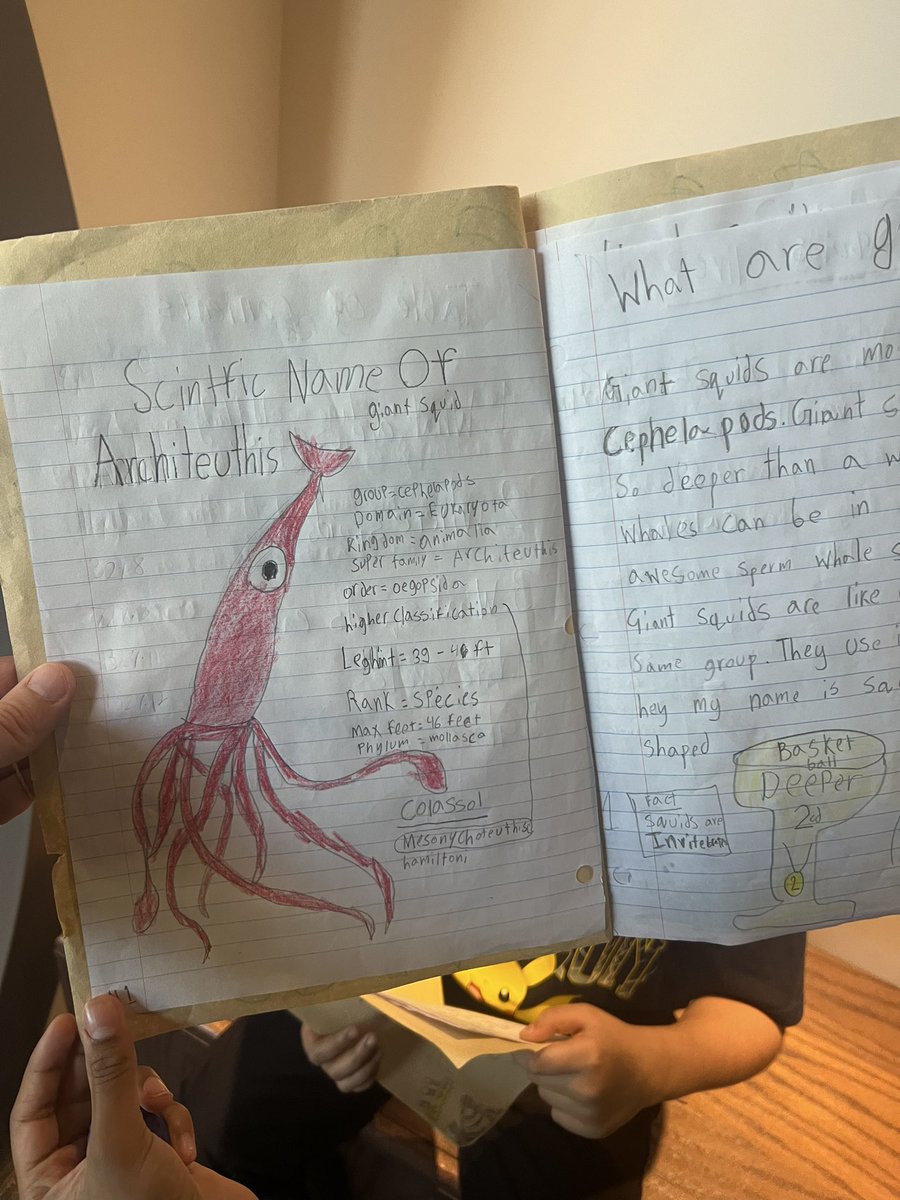 Scintfic Name Of
giant squid
Architeuthis
group=cephelapods
Domain=Eukaryota
Kingdom=animalia
super family = Architeuthis
order=oegopsida
higher classification
Leghint=39-46 ft
Rank=species
max feet=46 feet
Phylum=mollasca
Colassol
Mesonychoteuthis
hamiltoni
1
What are g
Giant squids are mo
Cephelapods. Giant s
So deeper than a w
Whales can be in
awesome sperm whale s
Giant squids are like
Same group. They use i
hey my name is Sa
Shaped
Basket
ball
Deeper
2
Fact
squids are